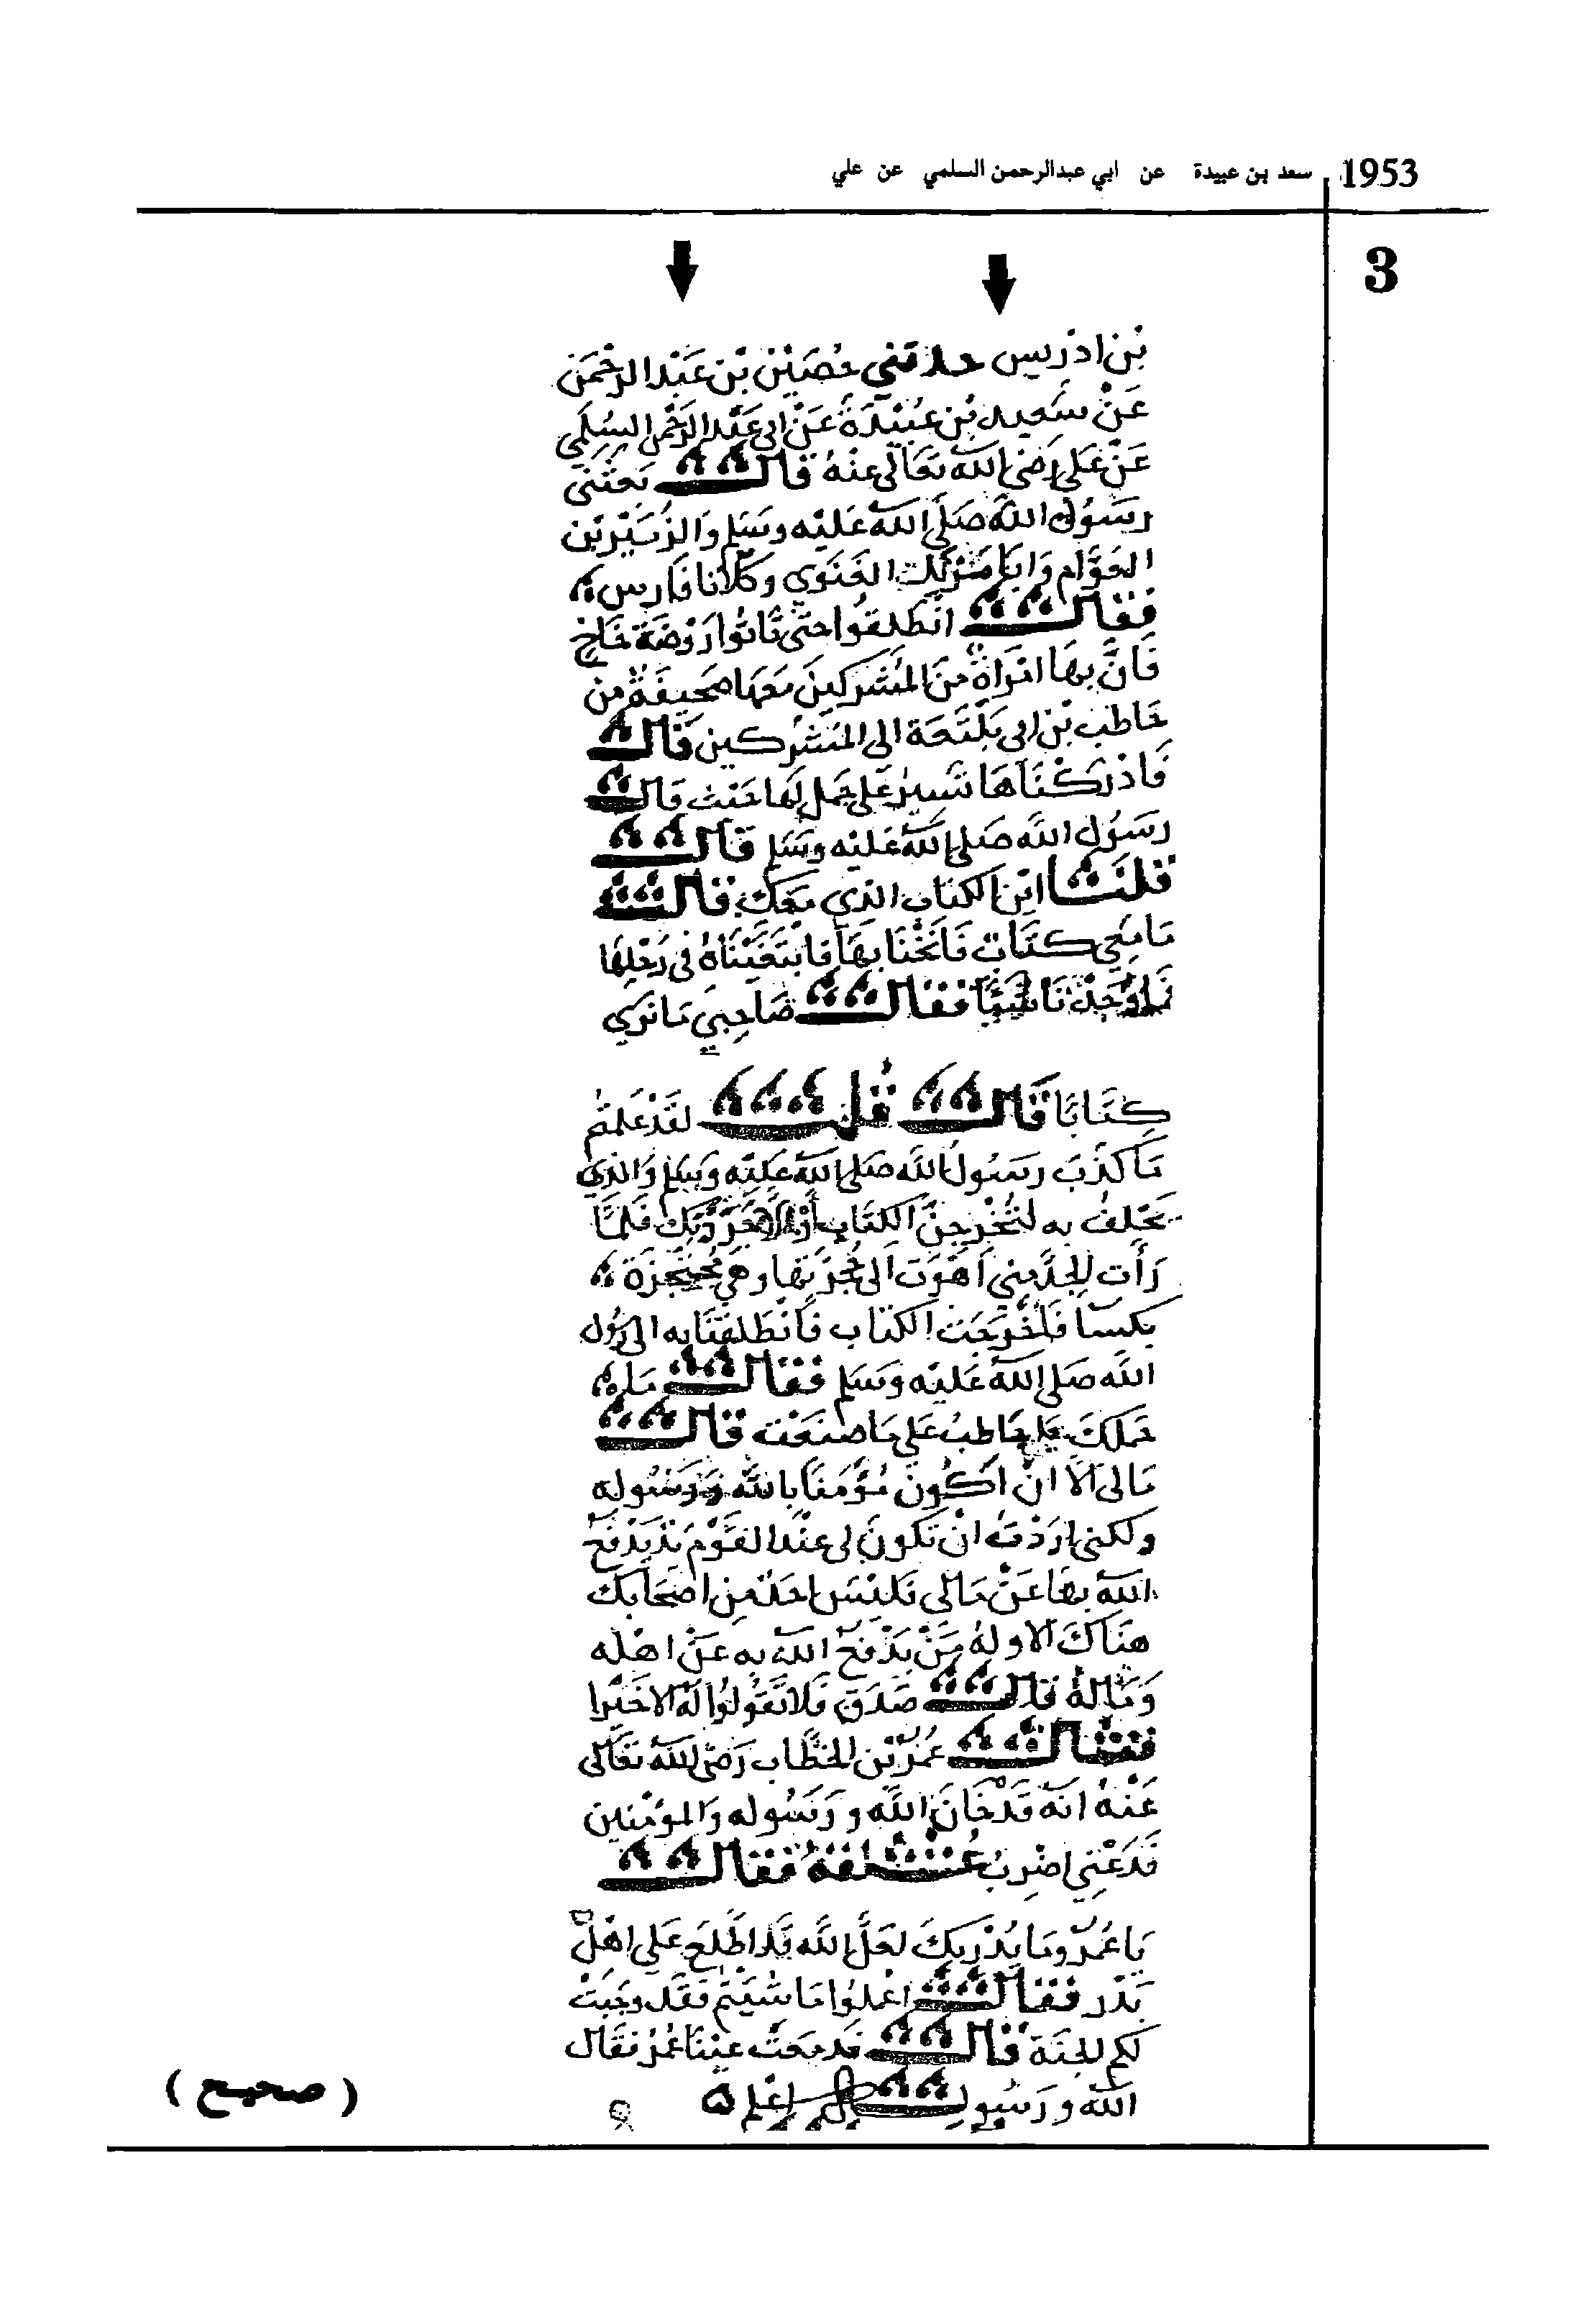 1953 سعد بن عبيدة عن ابي عبدالرحمن السلمي عن علي
3
بن ادريس حدثني حصين بن عبد الرحمن
عن سعيد بن عبيدة عن ابي عبد الرحمن السلمي
عن علي رضي الله تعالى عنه قال بعثني
رسول الله صلى الله عليه وسلم والزبير بن
العوام وابا مرثد الغنوي وكلانا فارس
فقال انطلقوا حتى تاتوا روضة خاخ
فان بها امراة من المشركين معها صحيفة من
حاطب بن ابي بلتعة الى المشركين قال
فادركناها تسير على جمل لها حيث قال
رسول الله صلى الله عليه وسلم قال
قلنا اين الكتاب الذي معك قالت
ما معي كتاب فانخنا بها فابتغيناه في رحلها
فما وجدنا شيئا فقال صاحبي ما نرى
كتابا قال قلت لقد علمتم
ما كذب رسول الله صلى الله عليه وسلم والذي
يحلف به لتخرجن الكتاب او لاجردنك فلما
رأت الجد مني اهوت الى حجزتها وهي محتجزة
بكسا فاخرجت الكتاب فانطلقنا به الى رسول
الله صلى الله عليه وسلم فقال ما
حملك يا حاطب على ما صنعت قال
مالي الا ان اكون مؤمنا بالله ورسوله
ولكني اردت ان تكون لي عند القوم يد يدفع
الله بها عن مالي فليس احد من اصحابك
هناك الا وله من يدفع الله به عن اهله
وماله قال صدق فلا تقولوا له الا خيرا
فقال عمر بن الخطاب رضي الله تعالى
عنه انه قد خان الله ورسوله والمؤمنين
فدعني اضرب عنقه فقال
يا عمر وما يدريك لعل الله قد اطلع على اهل
بدر فقال اعملوا ما شيتم فقد وجبت
لكم الجنة قال فدمعت عينا عمر فقال
الله ورسوله اعلم
( صحيح )